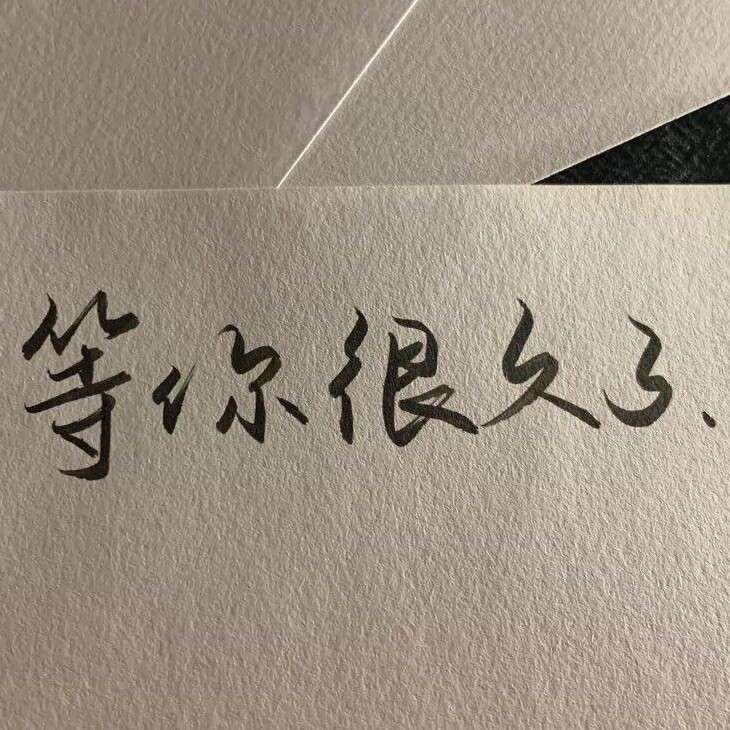 等你很久了.